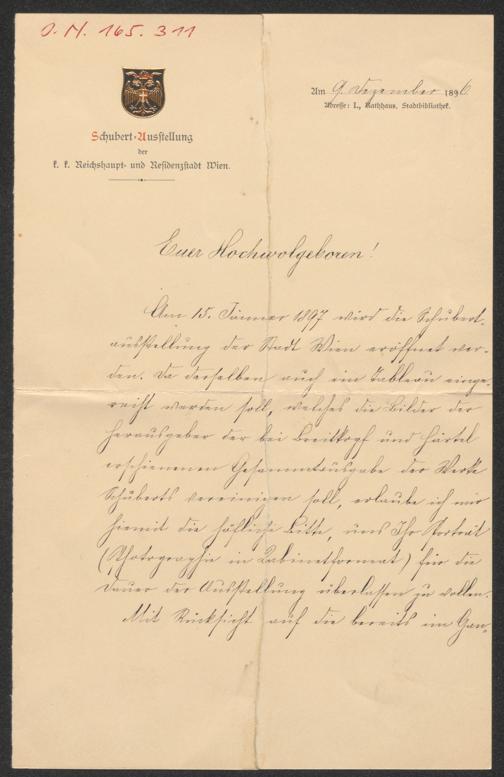 J. N. 165.311
Am 9. Dezember 1896
Adresse: I., Rathhaus, Stadtbibliothek.
Schubert-Ausstellung
der
k. k. Reichshaupt- und Residenzstadt Wien.
Euer Hochwolgeboren!
Am 15. Jänner 1897 wird die Schubert-
ausstellung der Stadt Wien eröffnet wer-
den. Da derselben auch ein Tableau einge-
reiht werden soll, welches die Bilder der
Herausgeber der bei Breitkopf und Härtel
erschienenen Gesammtausgabe der Werke
Schuberts vereinigen soll, erlaube ich mir
hiemit die höfliche Bitte, uns Ihr Porträt
(Photographie in Kabinetformat) für die
Dauer der Ausstellung überlassen zu wollen.
Mit Rücksicht auf die bereits im Gan-